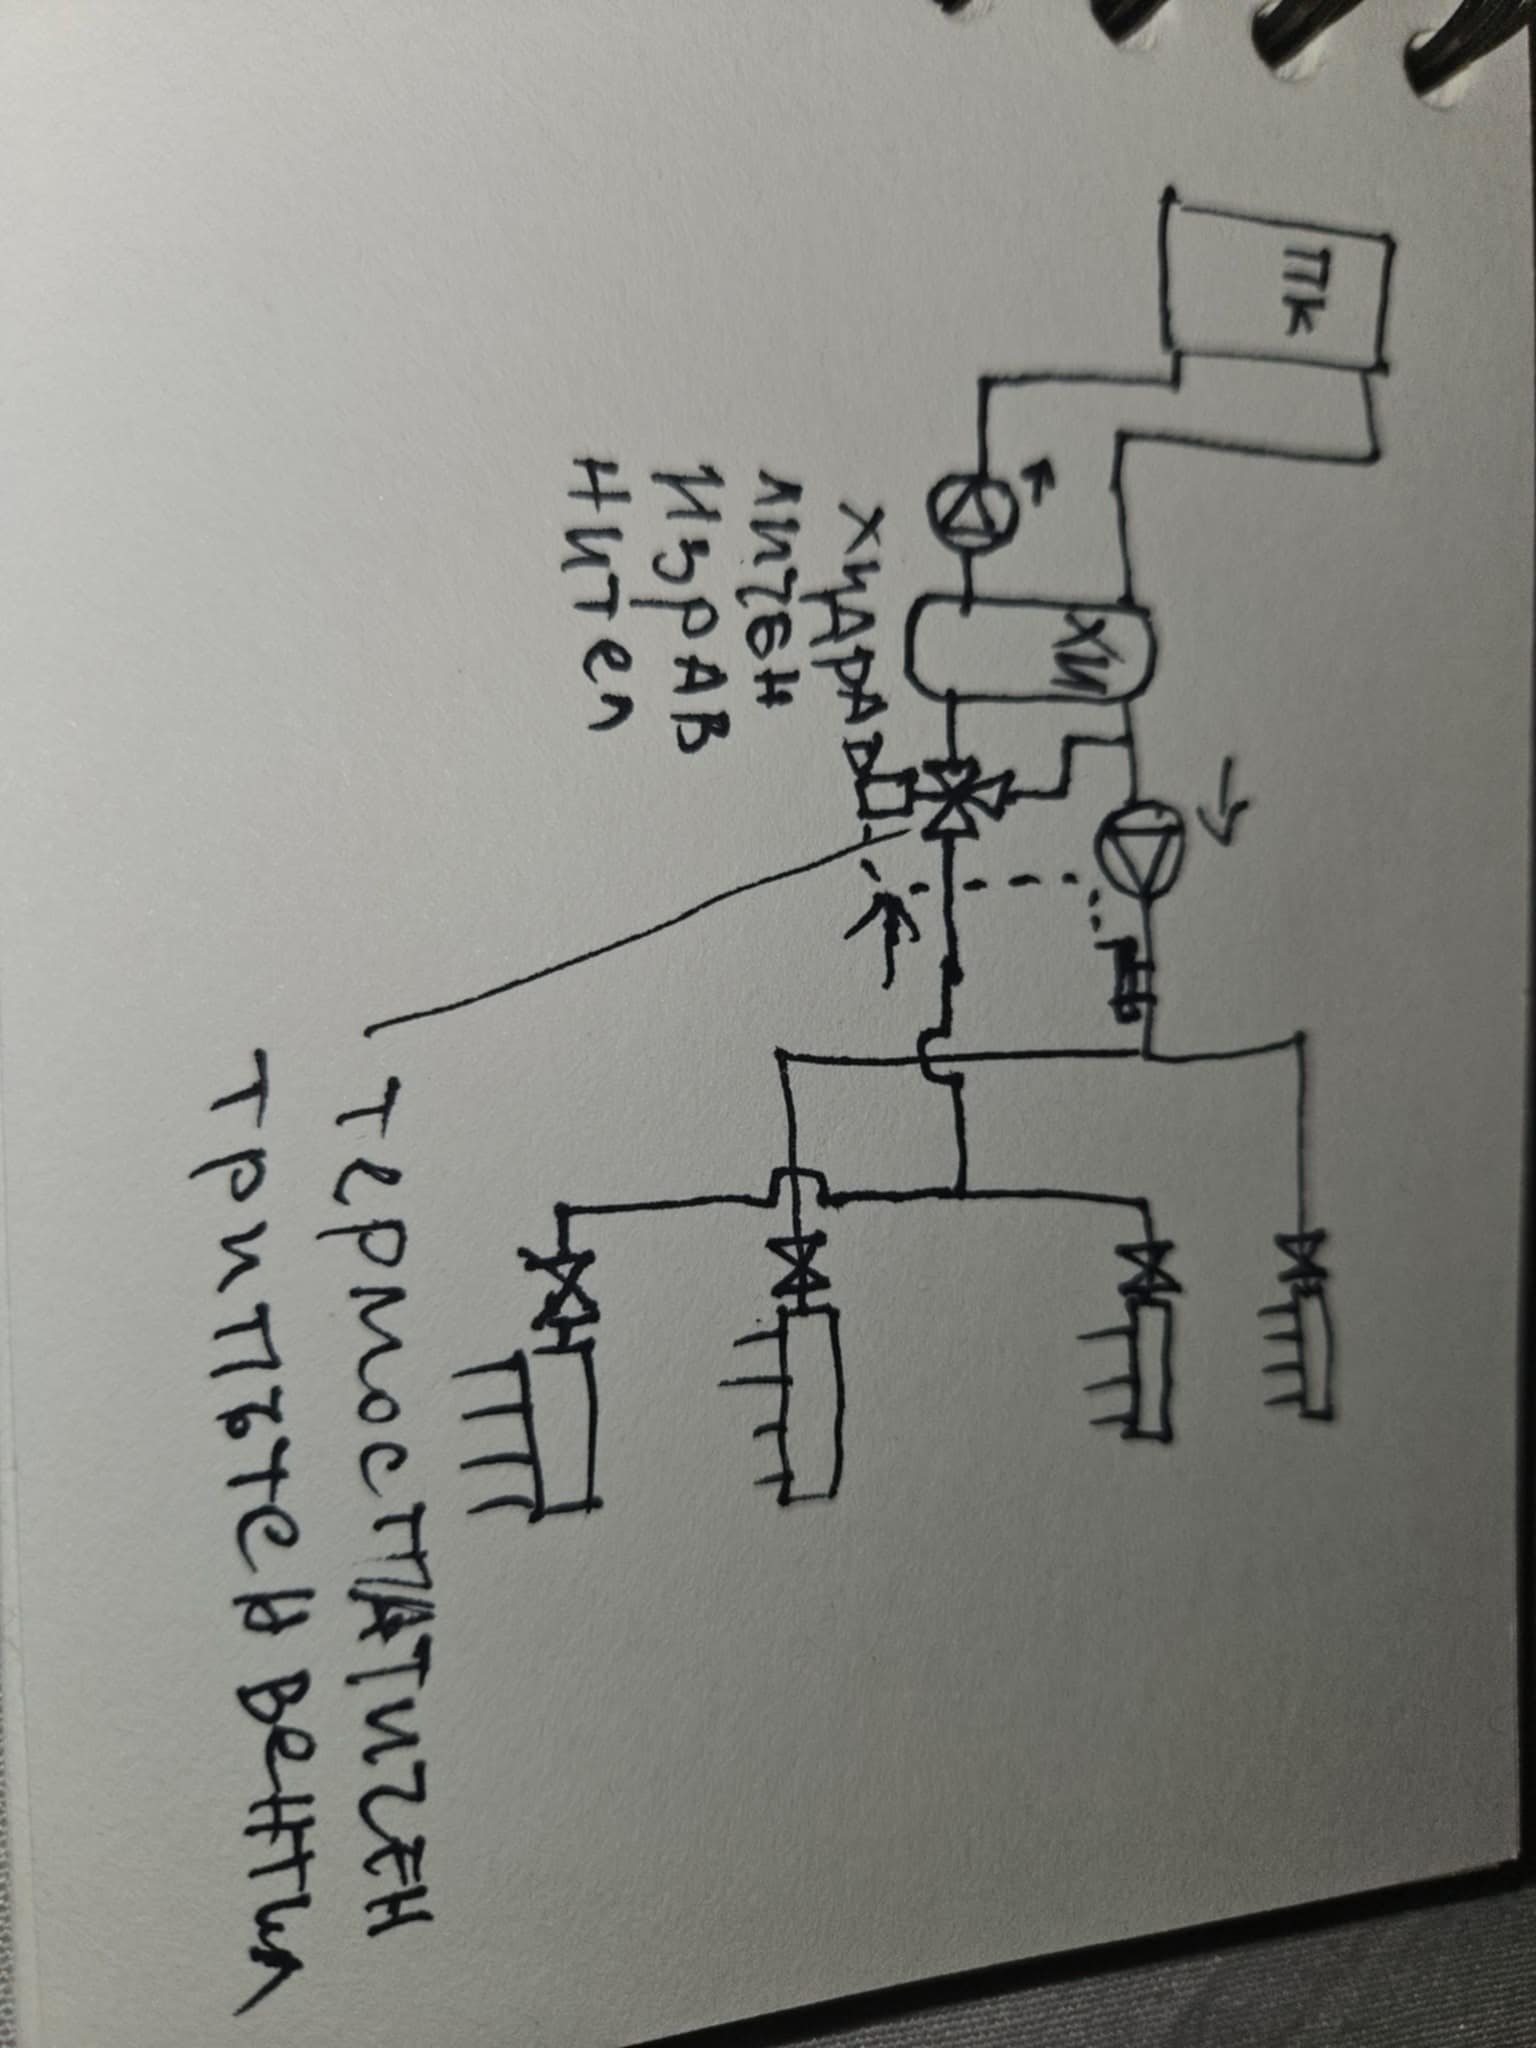 ПК
ХИ
ХИДРАВ
ЛИЧЕН
ИЗРАВ
НИТЕЛ
ТЕРМОСТАТИЧЕН
ТРИПЪТЕН ВЕНТИЛ